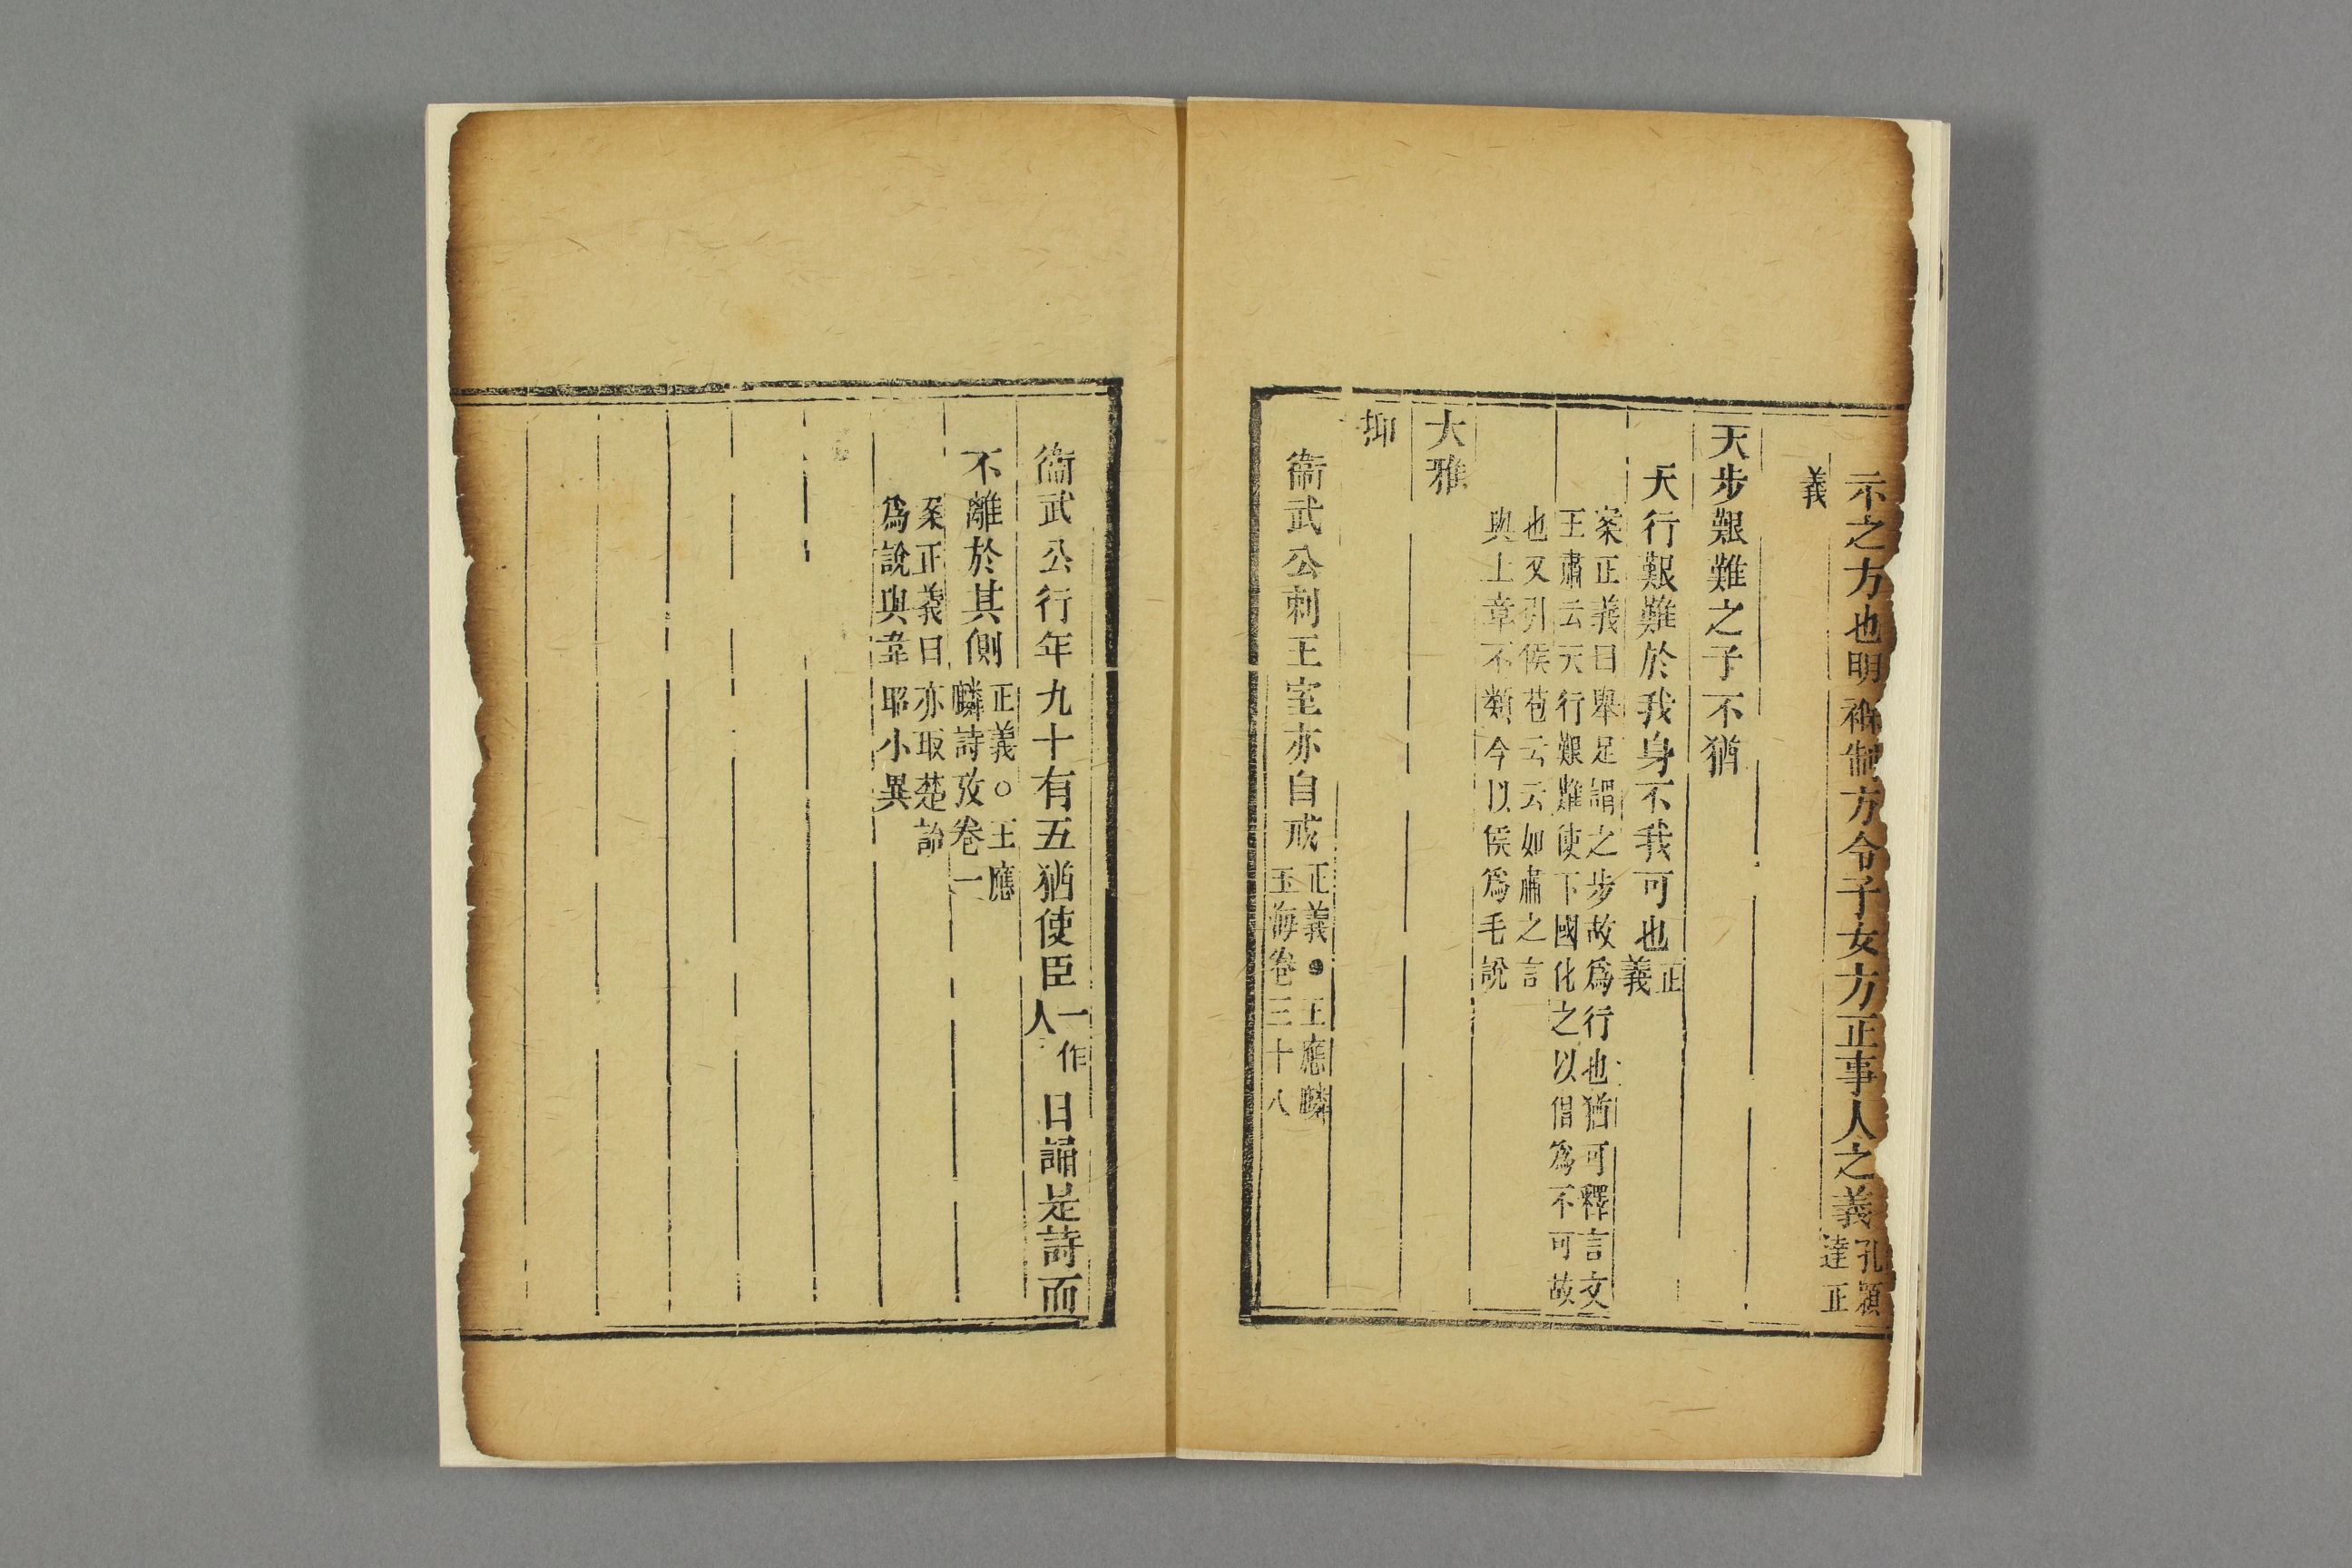 示之方也明褅制方令子女方正事人之義孔穎達正
義
天步艱難之子不猶
天行艱難於我身不我可也正義
案正義曰舉足謂之步故爲行也猶可釋言文
王肅云天行艱難使下國化之以倡爲不可故
也又引侯苞云云如肅之言
與上章不類今以侯爲毛說
大雅
抑
衞武公刺王室亦自戒正義●王應麟玉海卷三十八
衞武公行年九十有五猶使臣一作人日誦是詩而
不離於其側正義○王應麟詩攷卷一
案正義曰亦取楚語
爲說與韋昭小異